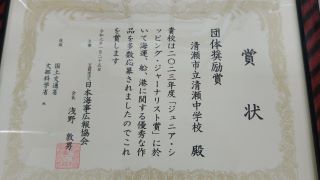 賞状
団体奨励賞
清瀬市立清瀬中学校 殿
貴校は二〇二三年度「ジュニア・シ
ッピング・ジャーナリスト賞」に於
いて海運、船、港に関する優秀な作
品を多数応募されましたのでこれ
を賞します
主催 公益財団法人 日本海事広報協会
会長 浅野 敦男
後援 国土交通省
文部科学省